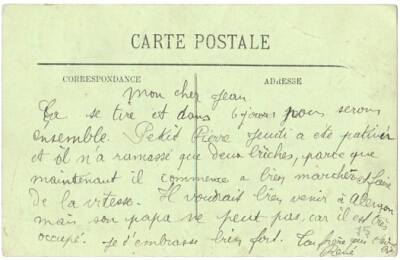 CARTE POSTALE
CORRESPONDANCE
ADRESSE
Mon cher Jean.
Ça se tire et dans 6 jours nous serons
ensemble. Petit Pierre Jeudi a été patiner
et il n'a ramassé que deux bûches, parce que
maintenant il commence a bien marcher et faire
de la vitesse. Il voudrait bien venir à Alençon
mais son papa ne peut pas car il est très
occupé. Je t'embrasse bien fort. Ton frère qui
René